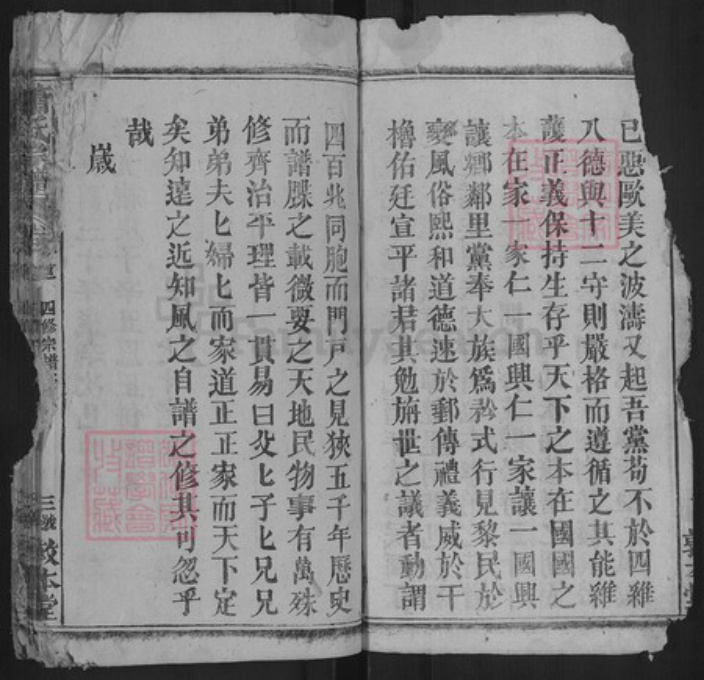 已惡歐美之波濤又起吾黨苟不於四維
八德與十二守則嚴格而遵循之其能維
護正義保持生存乎天下之本在國國之
本在家一家仁一國興仁一家讓一國興
讓鄉鄰里黨奉大族爲矜式行見黎民於
變風俗熙和道德速於郵傳禮義威於干
櫓佑廷宣平諸君其勉旃世之議者動謂
四百兆同胞而門戶之見狹五千年歷史
而譜牒之載微要之天地民物事有萬殊
修齊治平理皆一貫易曰父匕子匕兄兄
弟弟夫匕婦匕而家道正正家而天下定
矣知遠之近知風之自譜之修其可忽乎
哉
歲
四修宗譜
三號
敦本堂